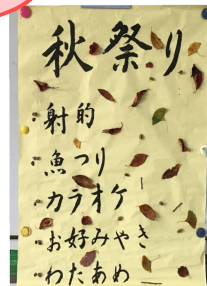 秋祭り
・射的
・魚つり
・カラオケ
・お好みやき
・わたあめ